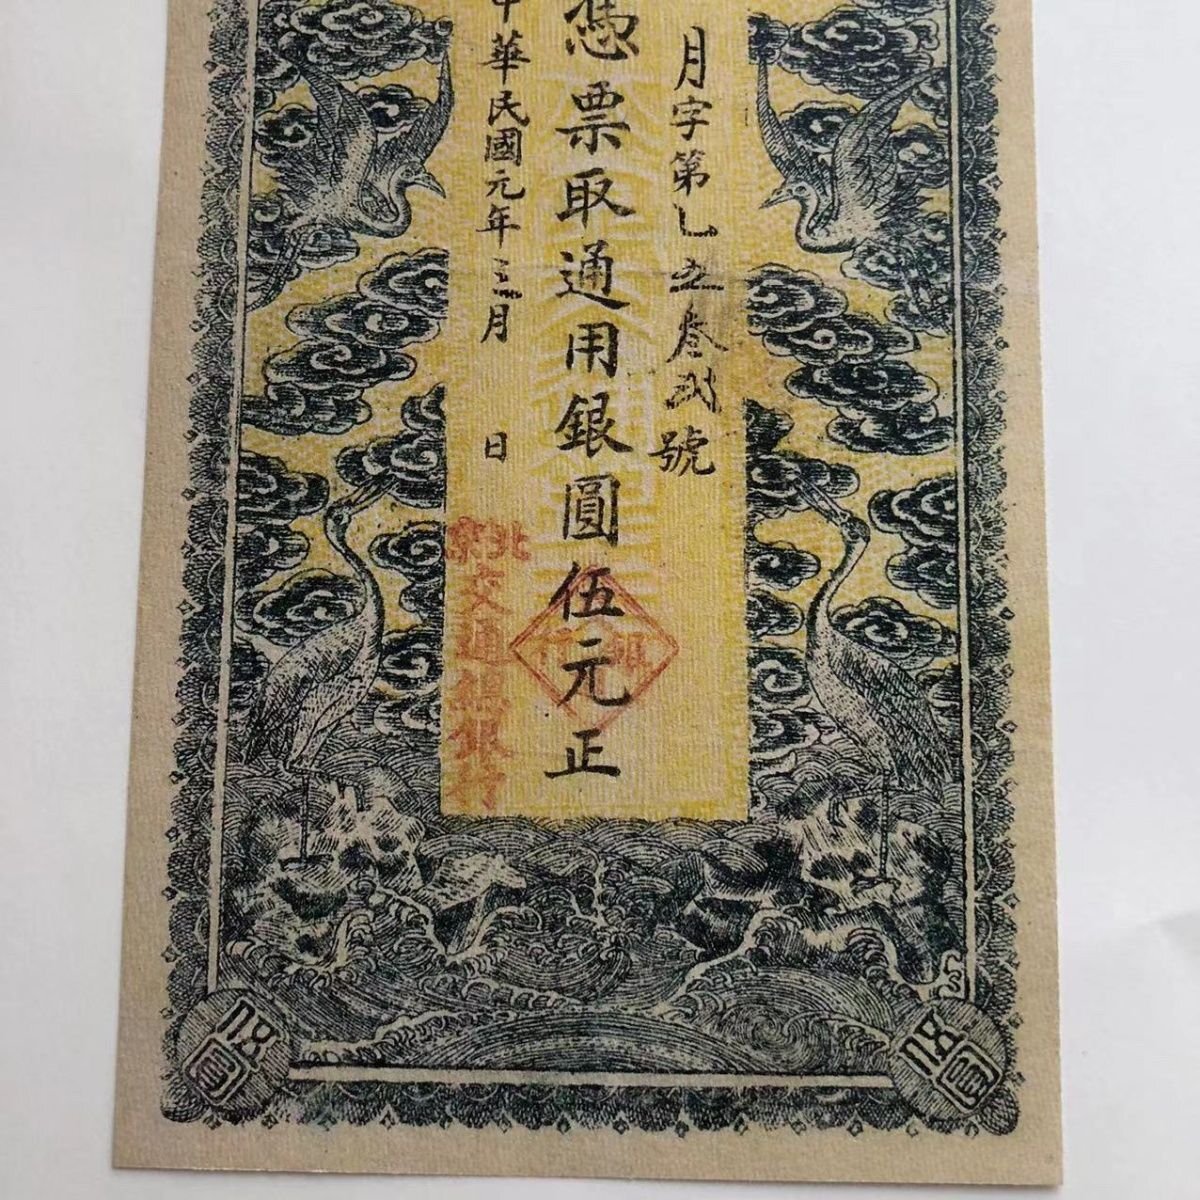 月字第乚五叄弍號
憑票取通用銀圓伍元正
中華民國元年三月 日
北京
交通總銀行
伍圓
伍圓